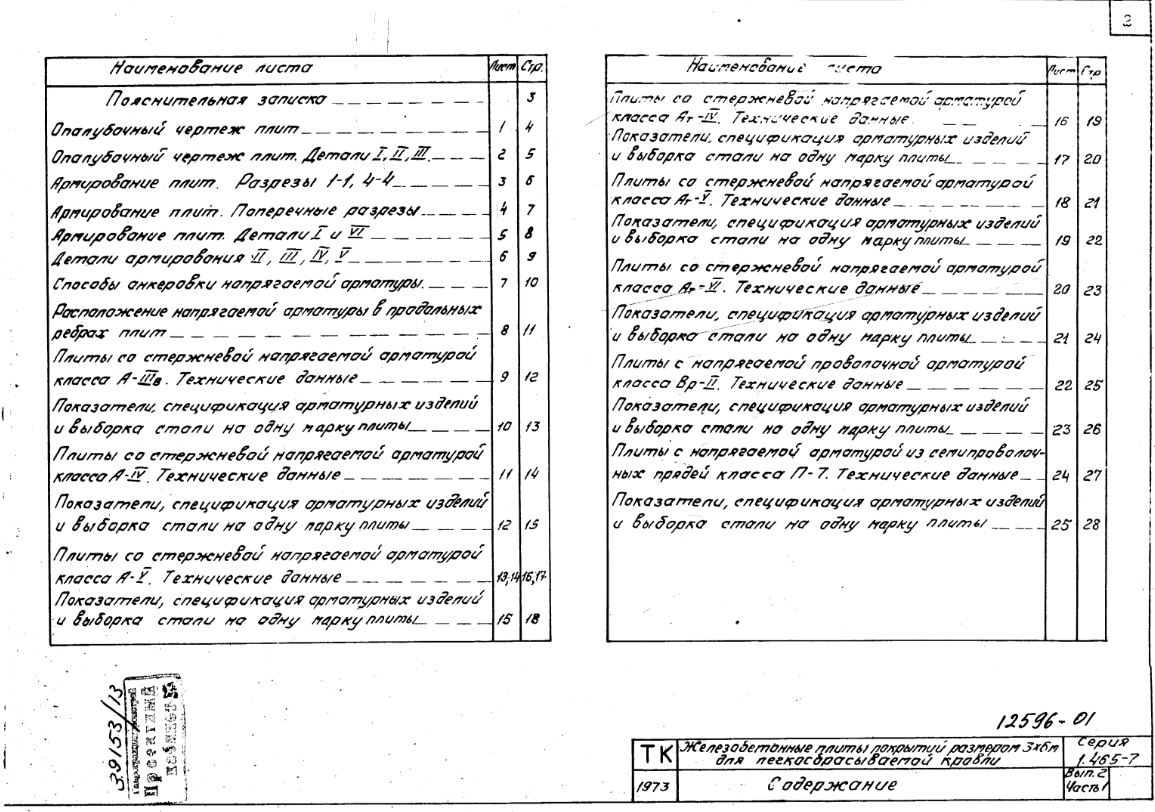 2
Наименование листа Лист Стр.
Пояснительная записка 3
Опалубочный чертеж плит 1 4
Опалубочный чертеж плит. Детали I, II, III. 2 5
Армирование плит. Разрезы 1-1, 4-4 3 6
Армирование плит. Поперечные разрезы 4 7
Армирование плит. Детали I и VI 5 8
Детали армирования II, III, IV, V 6 9
Способы анкеровки напрягаемой арматуры. 7 10
Расположение напрягаемой арматуры в продольных
ребрах плит 8 11
Плиты со стержневой напрягаемой арматурой
класса А-IIIв. Технические данные 9 12
Показатели, спецификация арматурных изделий
и выборка стали на одну марку плиты 10 13
Плиты со стержневой напрягаемой арматурой
класса А-IV. Технические данные 11 14
Показатели, спецификация арматурных изделий
и выборка стали на одну марку плиты 12 15
Плиты со стержневой напрягаемой арматурой
класса А-V. Технические данные 13,14 16,17
Показатели, спецификация арматурных изделий
и выборка стали на одну марку плиты 15 18
Наименование листа Лист Стр
Плиты со стержневой напрягаемой арматурой
класса Ат-IV. Технические данные. 16 19
Показатели, спецификация арматурных изделий
и выборка стали на одну марку плиты 17 20
Плиты со стержневой напрягаемой арматурой
класса Ат-V. Технические данные 18 21
Показатели, спецификация арматурных изделий
и выборка стали на одну марку плиты 19 22
Плиты со стержневой напрягаемой арматурой
класса Ат-VI. Технические данные 20 23
Показатели, спецификация арматурных изделий
и выборка стали на одну марку плиты 21 24
Плиты с напрягаемой проволочной арматурой
класса Вр-II. Технические данные 22 25
Показатели, спецификация арматурных изделий
и выборка стали на одну марку плиты 23 26
Плиты с напрягаемой арматурой из семипроволоч-
ных прядей класса П-7. Технические данные 24 27
Показатели, спецификация арматурных изделий
и выборка стали на одну марку плиты 25 28
39153/13
Проектный
кабинет
12596-01
ТК
Железобетонные плиты покрытий размером 3х6м
для легкосбрасываемой кровли
Серия
1.465-7
1973
Содержание
Вып.2
Часть 1